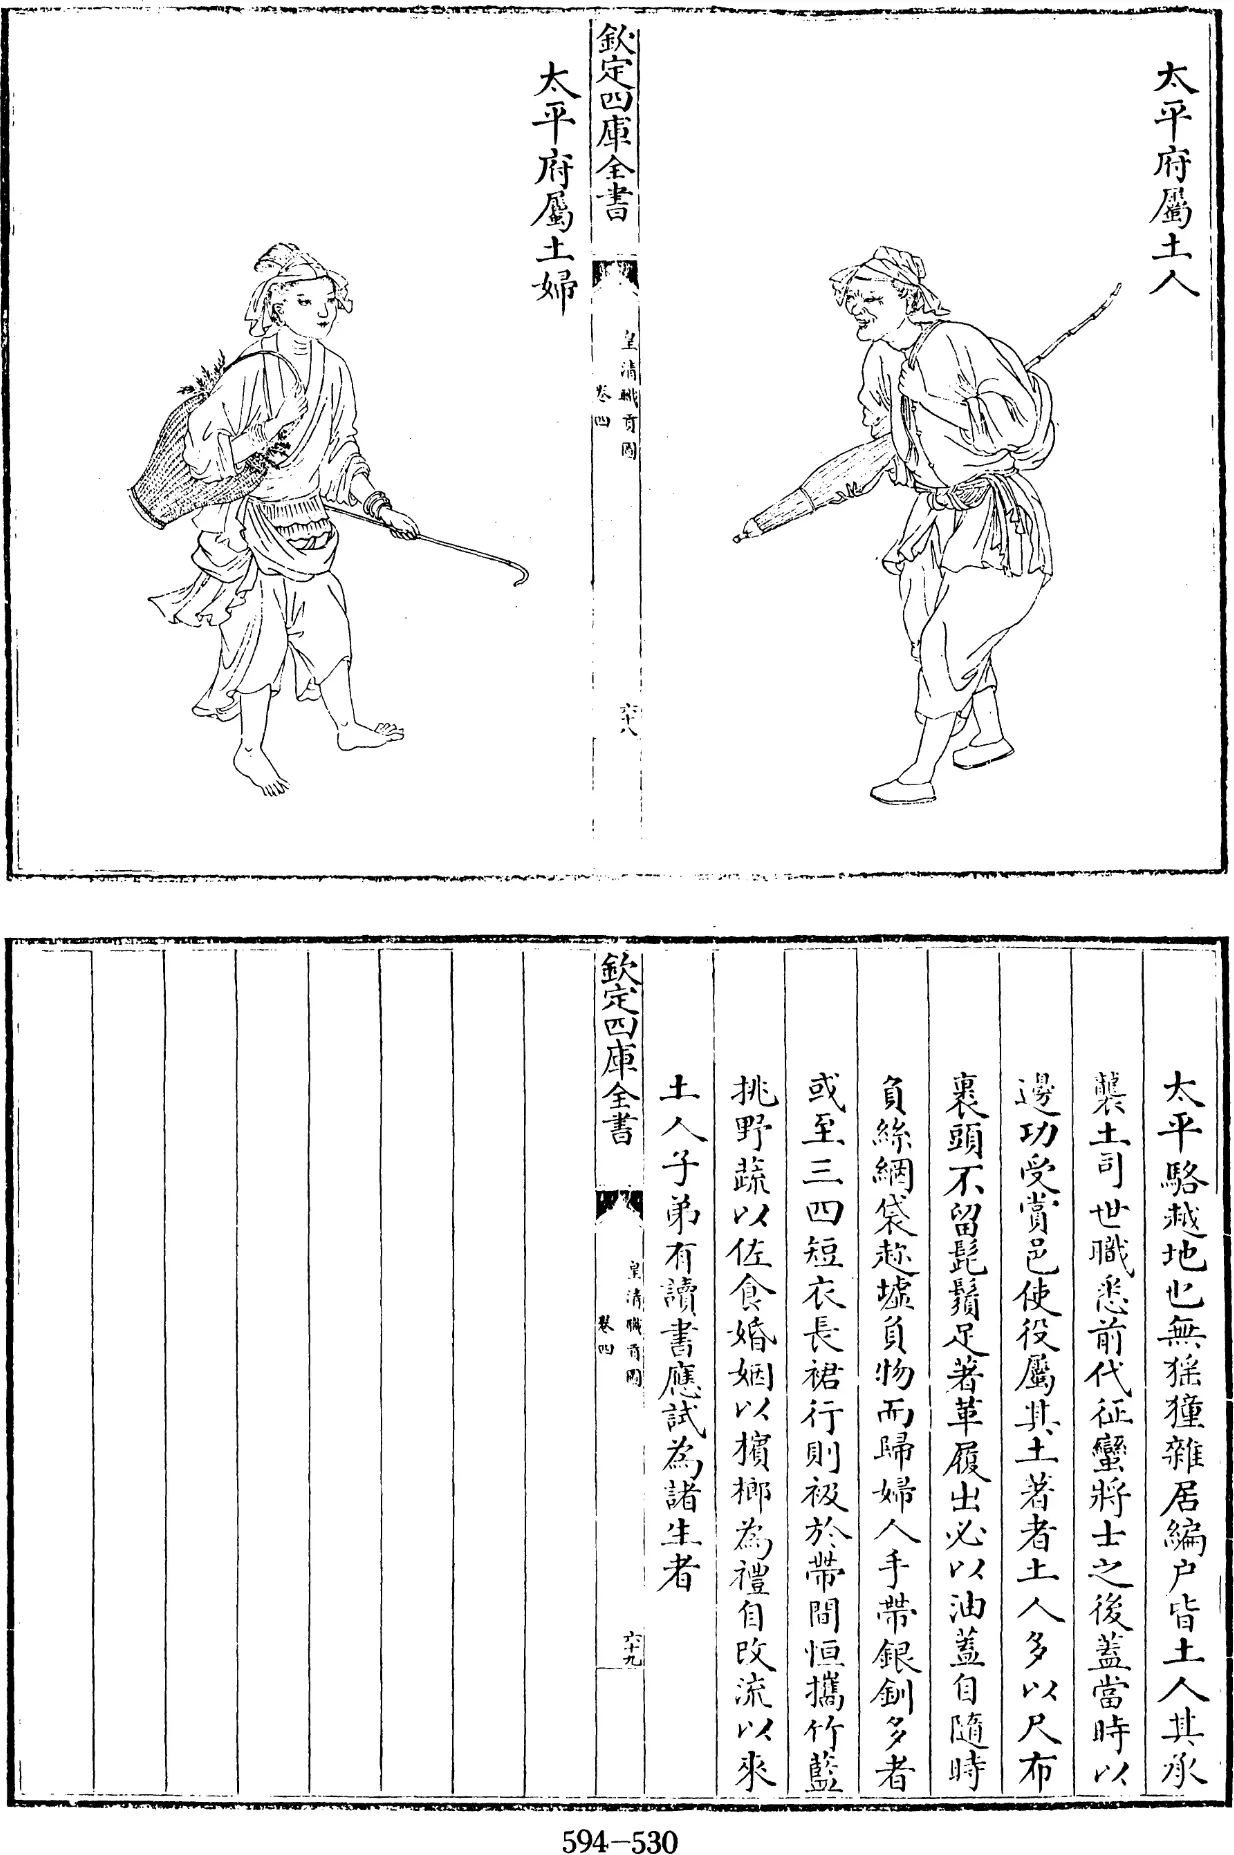 太平府屬土人
欽定四庫全書
皇清職貢圖
卷四
六十八
太平府屬土婦
太平駱越地也無猺獞雜居編户皆土人其承
襲土司世職悉前代征蠻將士之後蓋當時以
邊功受賞邑使役屬其土著者土人多以尺布
裹頭不留髭鬚足著革履出必以油蓋自隨時
負絲網袋趂墟負物而歸婦人手帶銀釧多者
或至三四短衣長裙行則衱於帶間恒攜竹籃
挑野蔬以佐食婚姻以檳榔為禮自改流以來
土人子弟有讀書應試為諸生者
欽定四庫全書
皇清職貢圖
卷四
六十九
594-530